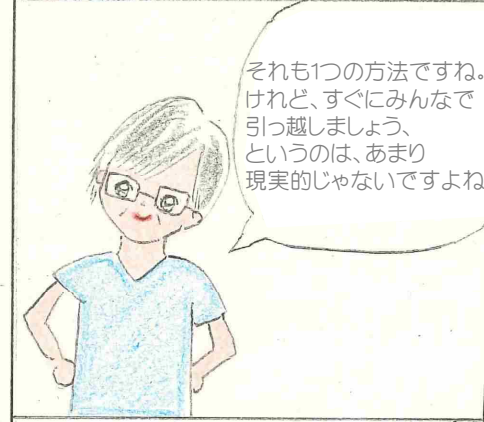 それも1つの方法ですね。
けれど、すぐにみんなで
引っ越しましょう、
というのは、あまり
現実的じゃないですよね